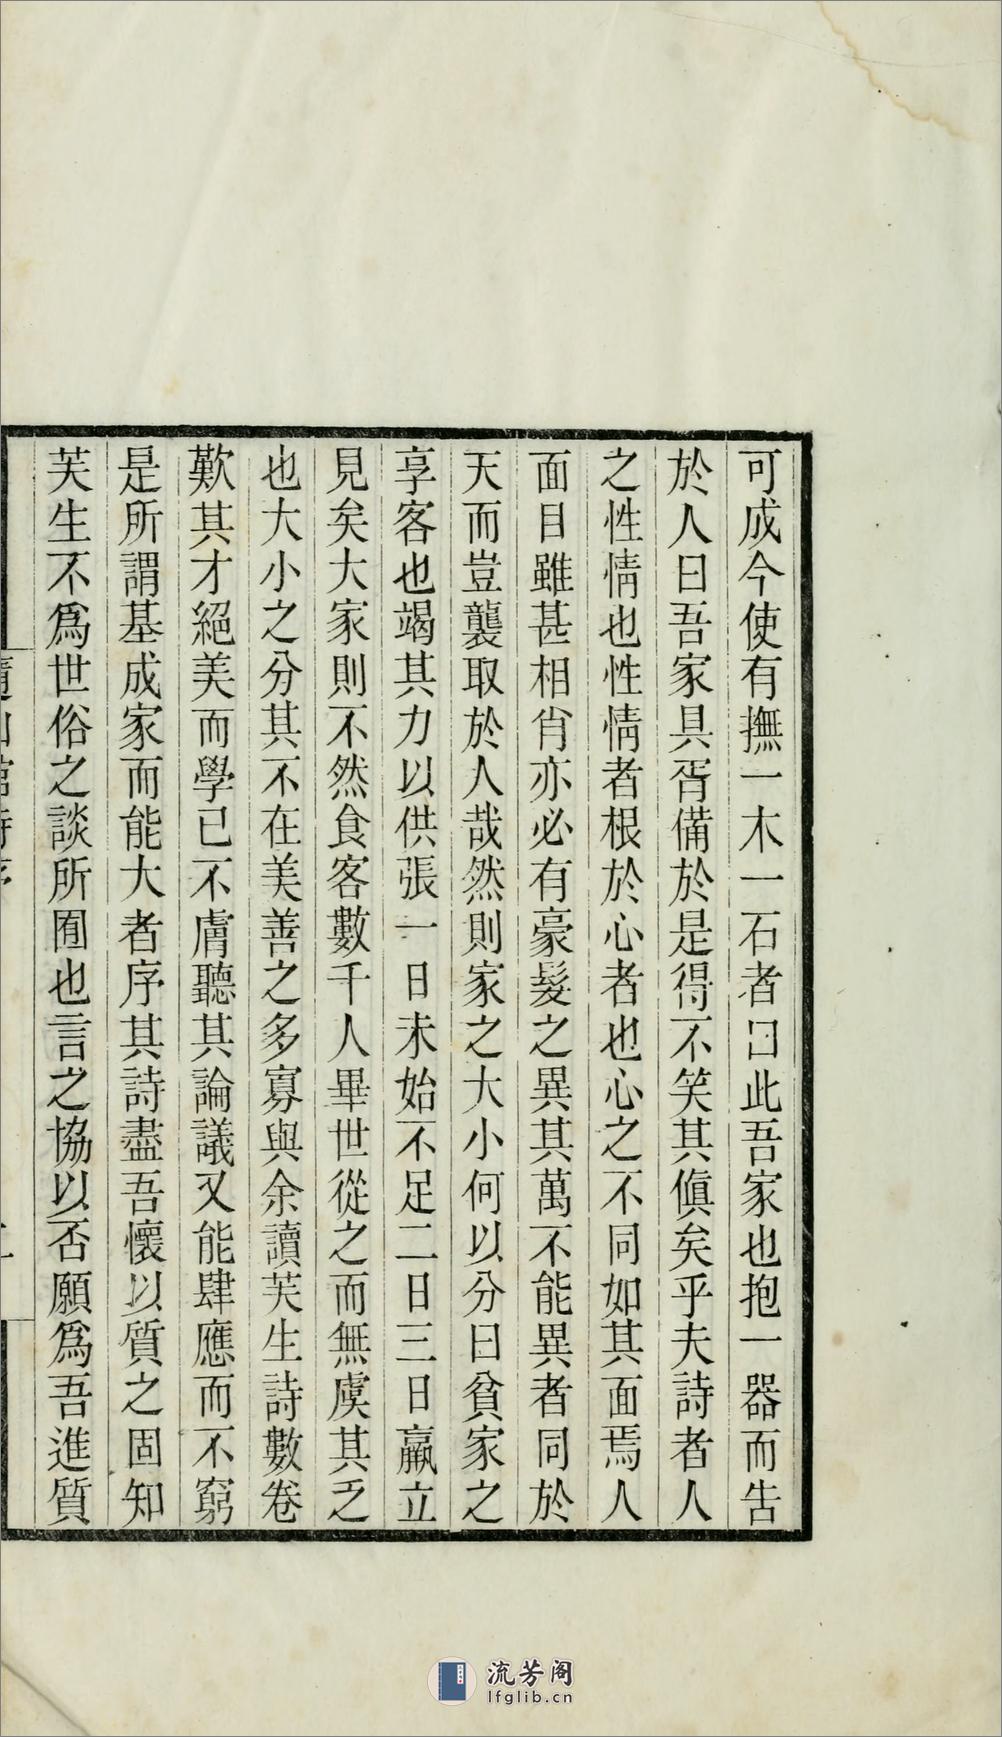 可成今使有撫一木一石者曰此吾家也抱一器而告
於人曰吾家具胥備於是得不笑其傎矣乎夫詩者人
之性情也性情者根於心者也心之不同如其面焉人
面目雖甚相肖亦必有豪髮之異其萬不能異者同於
天而豈襲取於人哉然則家之大小何以分曰貧家之
享客也竭其力以供張一日未始不足二日三日羸立
見矣大家則不然食客數千人畢世從之而無虞其乏
也大小之分其不在美善之多寡與余讀芙生詩數卷
歎其才絕美而學已不膚聽其論議又能肆應而不窮
是所謂基成家而能大者序其詩盡吾懷以質之固知
芙生不爲世俗之談所囿也言之協以否願爲吾進質
隨山館詩序
流芳阁
lfglib.cn